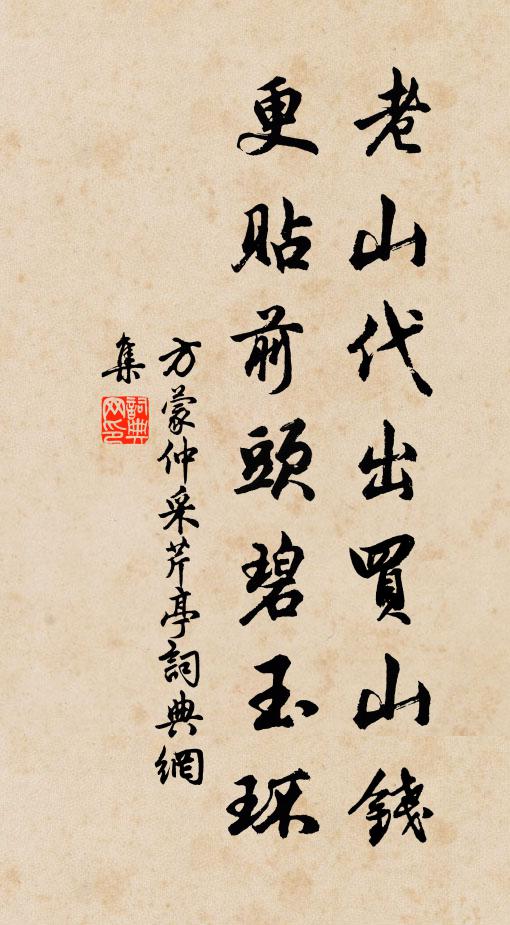 老山代出買山錢
更貼前頭碧玉環
方蒙仲采芹亭詞典網
集
詞典網印